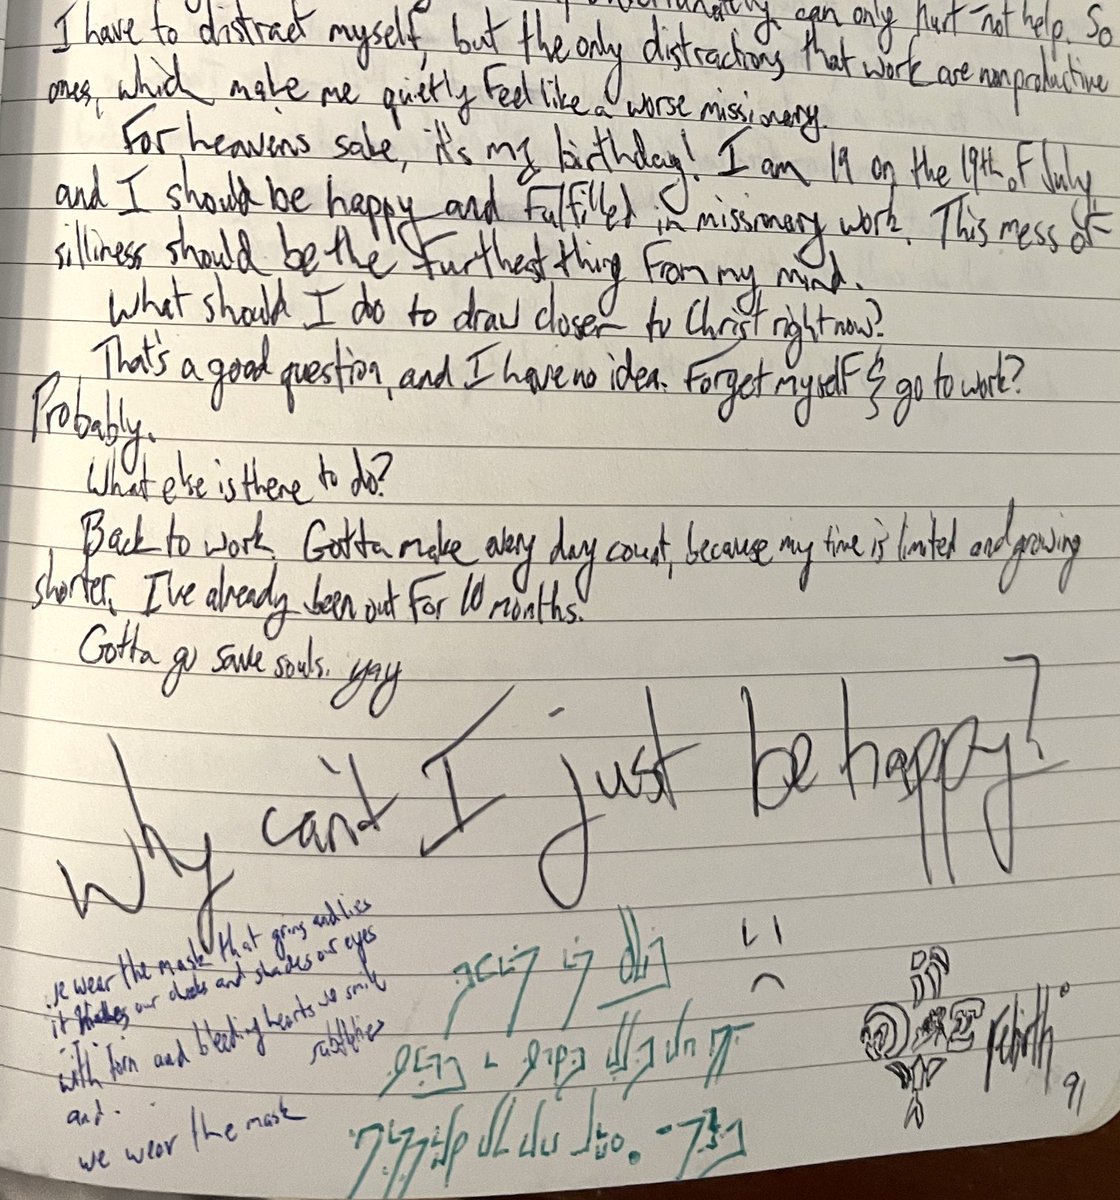 can only hurt not help. So
I have to distract myself, but the only distractions that work are nonproductive
ones, which make me quietly feel like a worse missionary.
For heavens sake, it's my birthday! I am 19 on the 19th of July
and I should be happy and fulfilled in missionary work. This mess of
silliness should be the furthest thing from my mind.
What should I do to draw closer to Christ right now?
That's a good question, and I have no idea. Forget myself & go to work?
Probably.
What else is there to do?
Back to work. Gotta make every day count, because my time is limited and growing
shorter. I've already been out for 10 months.
Gotta go save souls. yay
Why can't I just be happy?
we wear the mask that grins and lies
it our cheeks and shades our eyes
with torn and bleeding hearts we smile
and
subtleties
we wear the mask
rebirth
91